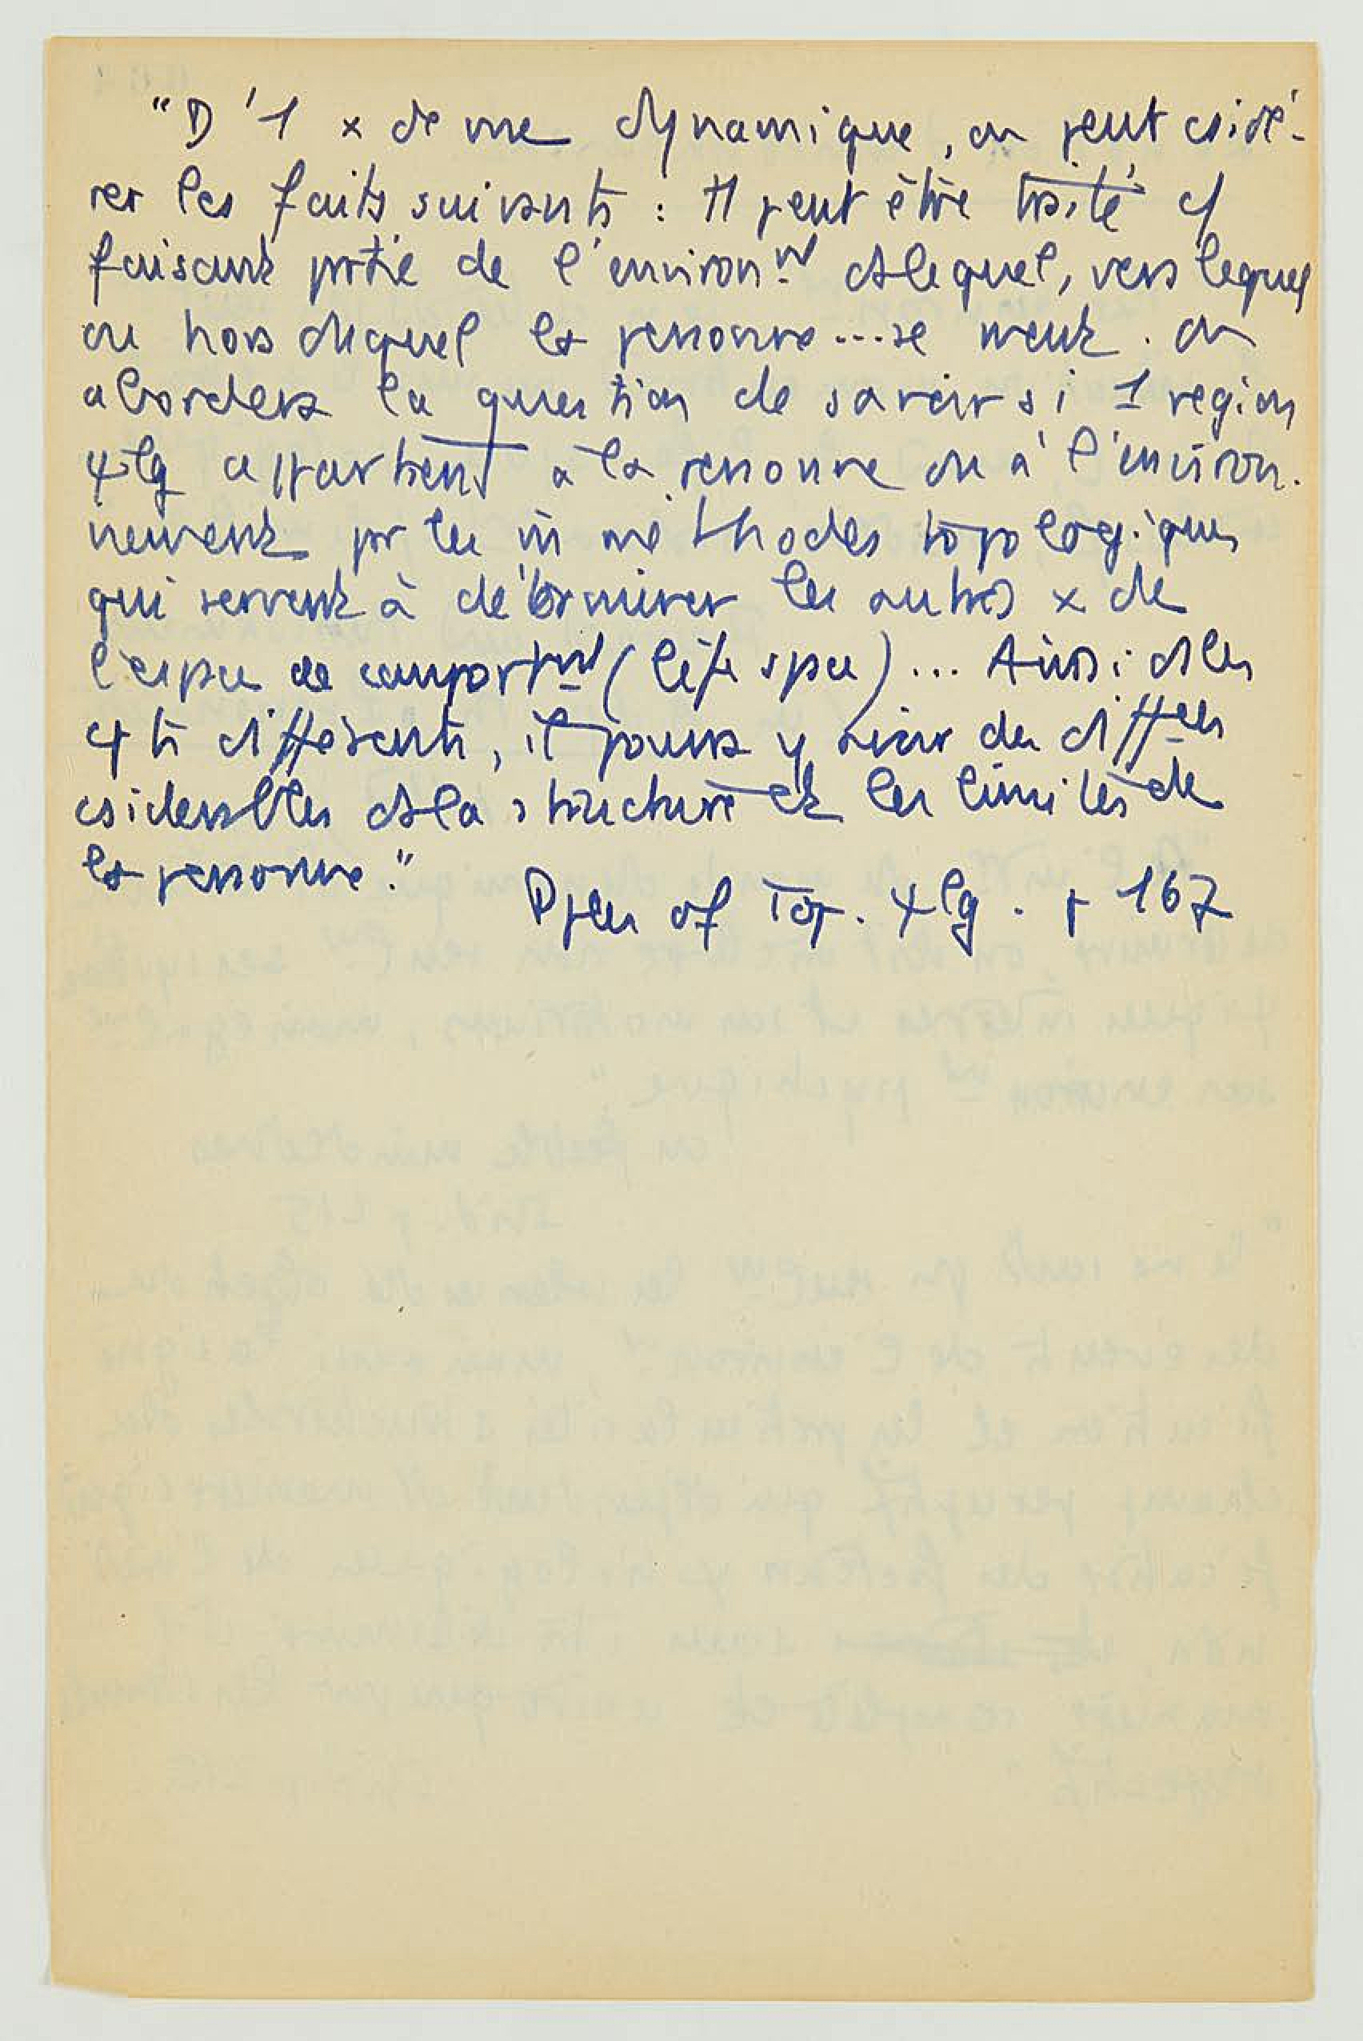 "D'1 x de vue dynamique, on peut csidé-
rer les faits suivants : Il peut être traité cf
faisant prtie de l'environ.nt ds lequel, vers lequel
ou hors duquel la personne...se meut. On
abordera la question de savoir si 1 region
ψlg appartient à la personne ou à l'environ.
nement par les m méthodes topologiques
qui servent à déterminer les autres x de
l'espace de comportmt (life space)... Ainsi ds les
cf ts différents, il pourra y avoir des diffces
csiderables ds la structure et les limites de
la personne."
Pples of Top. ψlg. p 167